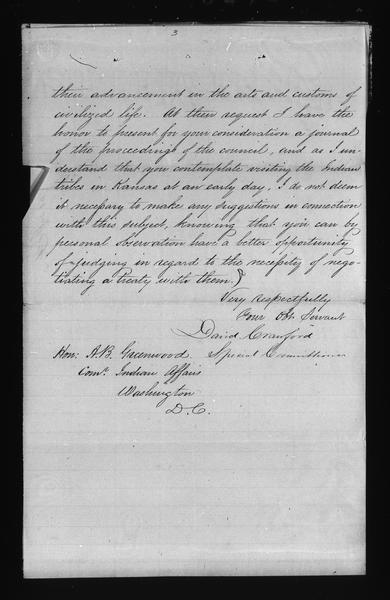 3
their advancement in the arts and customs of
civilized life. At their request I have the
honor to present for your consideration a journal
of the proceedings of the council, and as I un-
derstand that you contemplate visiting the Indian
tribes in Kansas at an early day, I do not deem
it necessary to make any suggestions in connection
with this subject, knowing that you can by
personal observation have a better opportunity
of judging in regard to the necessity of nego-
tiating a treaty with them.
Very respectfully
Your Obt Servant
David Crawford
Special Commissioner
Hon: A.B. Greenwood
Comr Indian Affairs
Washington
D.C.